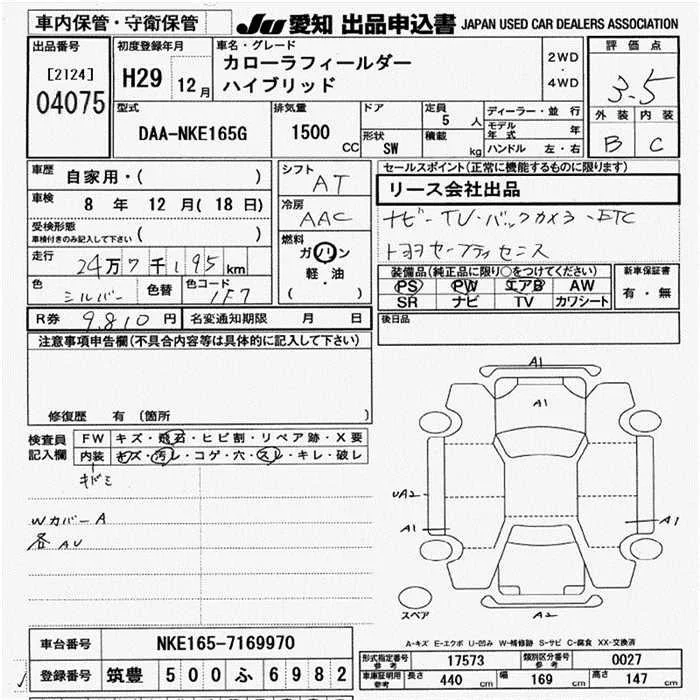 車内保管・守衛保管
JU 愛知 出品申込書 JAPAN USED CAR DEALERS ASSOCIATION
出品番号
[2124]
04075
初度登録年月
H29 12月
車名・グレード
カローラフィールダー
ハイブリッド
2WD
・
4WD
評価点
3.5
外装 内装
B C
型式
DAA-NKE165G
排気量
1500 CC
ドア
形状 SW
定員 5 人
積載 kg
ディーラー・並行
モデル年式 年
ハンドル 左・右
車歴 自家用・( )
車検 8 年 12 月( 18 日)
受検形態
車検付きのみ記入して下さい ( )
走行 24万7千195km
色 シルバー 色替 色コード 1F7
シフト
AT
冷房
AAC
燃料
ガソリン
軽・油
( )
セールスポイント(正常に機能するものに限ります)
リース会社出品
ナビ・TV・バックカメラ・ETC
トヨタセーフティセンス
装備品(純正品に限り〇をつけてください)
PS PW エアB AW
SR ナビ TV カワシート
新車保証書
有・無
R券 9,810 円 名変通知期限 月 日
後日品
注意事項申告欄(不具合内容等は具体的に記入して下さい)
修復歴 有(箇所 )
検査員記入欄
FW キズ・飛石・ヒビ割・リペア跡・X要
内装 キズ・汚レ・コゲ・穴・スレ・キレ・破レ
キドミ
Wカバー A
各AU
A1
A1
UA2
A1
A1
A2
スペア
A-キズ E-エクボ U-凹み W-補修跡 S-サビ C-腐食 XX-交換済
車台番号 NKE165-7169970
登録番号 筑豊 500 ふ 6982
形式指定番号 参考 17573 類別区分番号 参考 0027
車庫証明用 参考 長さ 440 cm 幅 169 cm 高さ 147 cm